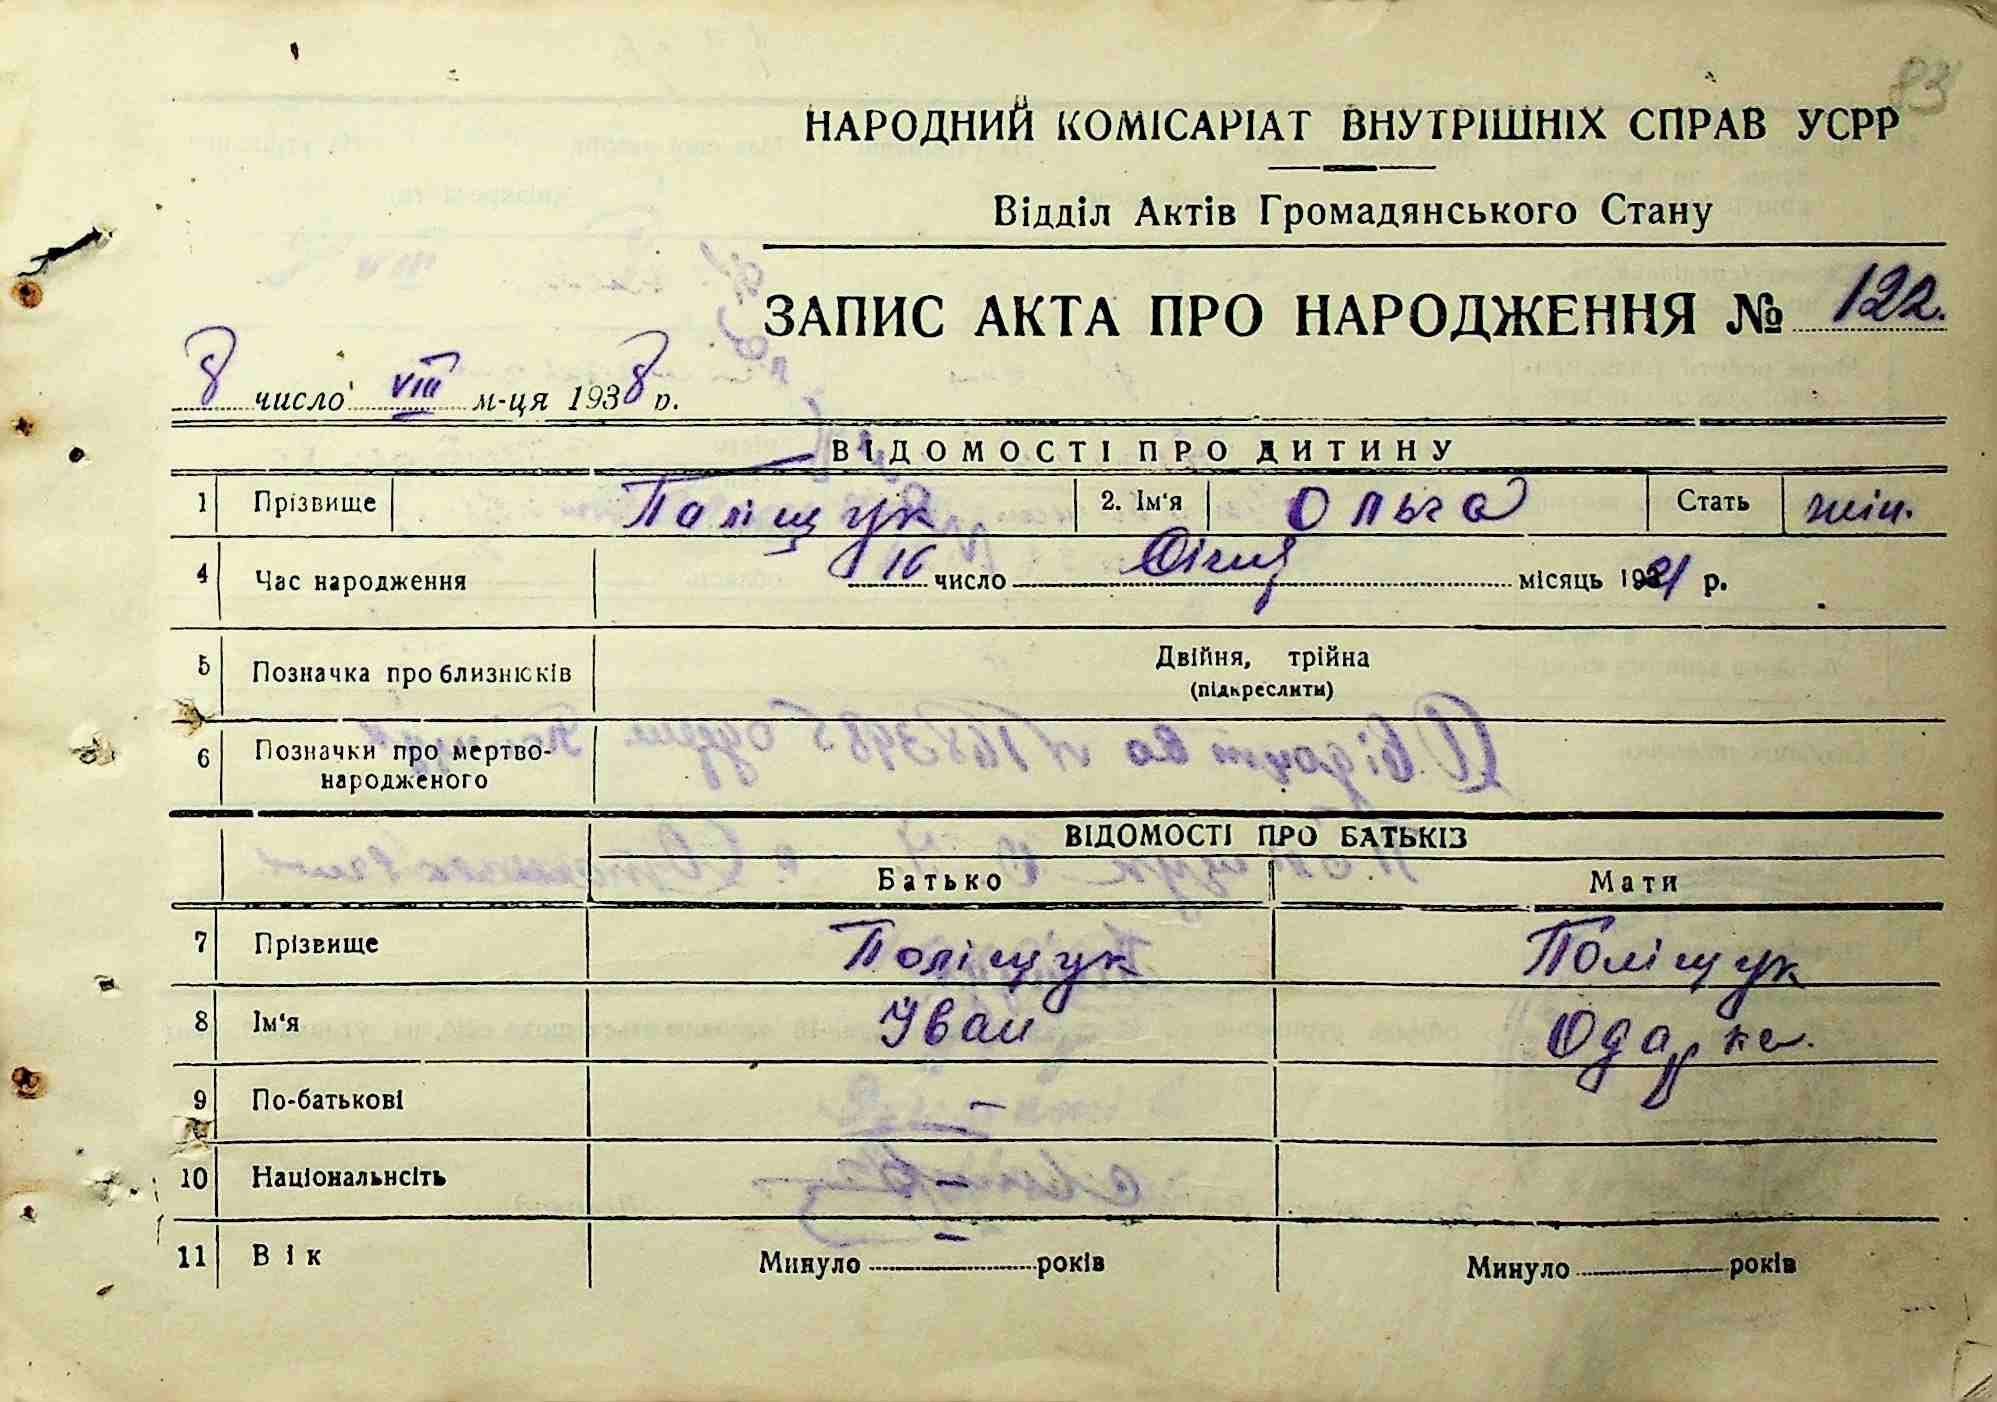 83
НАРОДНИЙ КОМІСАРІАТ ВНУТРІШНІХ СПРАВ УСРР
Відділ Актів Громадянського Стану
ЗАПИС АКТА ПРО НАРОДЖЕННЯ № 122.
8 число VIII м-ця 1938 р.
ВІДОМОСТІ ПРО ДИТИНУ
1 Прізвище Поліщук 2. Ім'я Ольга Стать жін.
4 Час народження 16 число Січня місяць 1921 р.
5 Позначка про близнюків Двійня, трійна
(підкреслити)
6 Позначки про мертво-
народженого
ВІДОМОСТІ ПРО БАТЬКІВ
Батько Мати
7 Прізвище Поліщук Поліщук
8 Ім'я Іван Одарка.
9 По-батькові –
10 Національнсіть –
11 Вік Минуло – років Минуло років